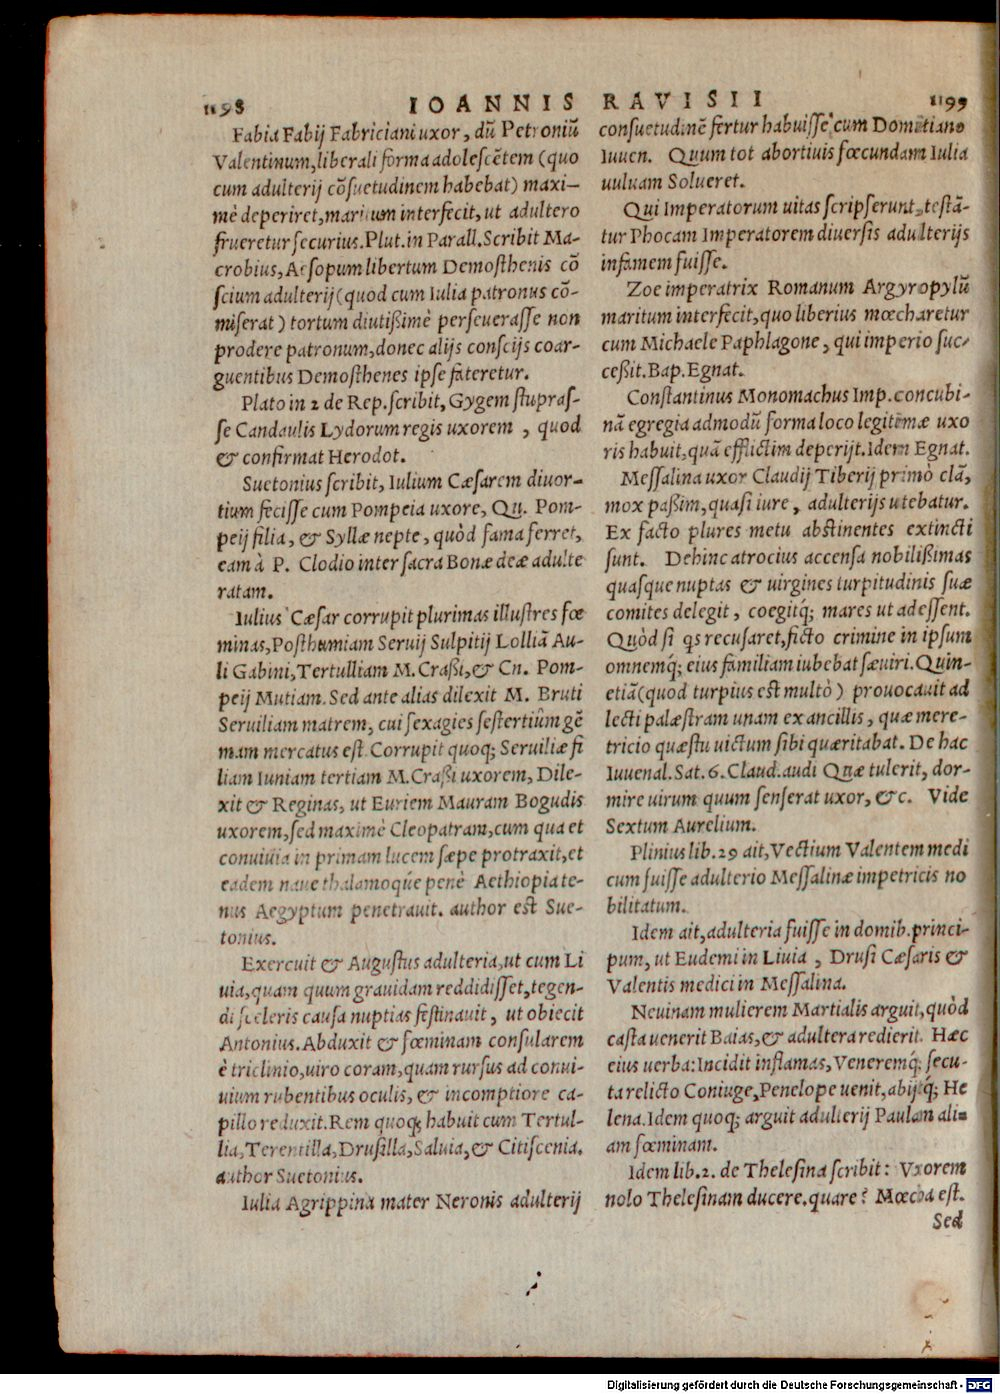 1198 IOANNIS RAVISII 1199
Fabia Fabij Fabriciani uxor, dũ Petroniũ
Valentinum, liberali forma adolescẽtem (quo
cum adulterij cõsuetudinem habebat) maxi-
mè deperiret, maritum interfecit, ut adultero
frueretur securius. Plut. in Parall. Scribit Ma-
crobius, Aesopum libertum Demosthenis cõ
scium adulterij (quod cum Iulia patronus cõ-
miserat) tortum diutißimè perseuerasse non
prodere patronum, donec alijs conscijs coar-
guentibus Demosthenes ipse fateretur.
Plato in 2 de Rep. scribit, Gygem stupras-
se Candaulis Lydorum regis uxorem, quod
& confirmat Herodot.
Suetonius scribit, Iulium Cæsarem diuor-
tium fecisse cum Pompeia uxore, Qu. Pom-
peij filia, & Syllæ nepte, quòd fama ferret,
eam à P. Clodio inter sacra Bonæ deæ adulte
ratam.
Iulius Cæsar corrupit plurimas illustres fœ
minas, Posthumiam Seruij Sulpitij Lolliã Au-
li Gabini, Tertulliam M. Craßi, & Cn. Pom-
peij Mutiam. Sed ante alias dilexit M. Bruti
Seruiliam matrem, cui sexagies sestertiûm gẽ
mam mercatus est. Corrupit quoq; Seruiliæ fi
liam Iuniam tertiam M. Craßi uxorem, Dile-
xit & Reginas, ut Euriem Mauram Bogudis
uxorem, sed maximè Cleopatram, cum qua et
conuiuia in primam lucem sæpe protraxit, et
eadem naue thalamoqúe penè Aethiopia te-
nus Aegyptum penetrauit. author est Sue-
tonius.
Exercuit & Augustus adulteria, ut cum Li
uia, quam quum grauidam reddidisset, tegen-
di sceleris causa nuptias festinauit, ut obiecit
Antonius. Abduxit & fœminam consularem
è triclinio, uiro coram, quam rursus ad conui-
uium rubentibus oculis, & incomptiore ca-
pillo reduxit. Rem quoq; habuit cum Tertul-
lia, Terentilla, Drusilla, Saluia, & Citiscenia.
author Suetonius.
Iulia Agrippina mater Neronis adulterij
consuetudinẽ fertur habuisse cum Domitiano
Iuuen. Quum tot abortiuis fœcundam Iulia
uuluam Solueret.
Qui Imperatorum uitas scripserunt, testã-
tur Phocam Imperatorem diuersis adulterijs
infamem fuisse.
Zoe imperatrix Romanum Argyropylũ
maritum interfecit, quo liberius mœcharetur
cum Michaele Paphlagone, qui imperio suc-
ceßit. Bap. Egnat.
Constantinus Monomachus Imp. concubi-
nã egregia admodũ forma loco legitemæ uxo
ris habuit, quã efflictim deperijt. Idem Egnat.
Messalina uxor Claudij Tiberij primò clã,
mox paßim, quasi iure, adulterijs utebatur.
Ex facto plures metu abstinentes extincti
sunt. Dehinc atrocius accensa nobilißimas
quasque nuptas & uirgines turpitudinis suæ
comites delegit, coegitq́; mares ut adessent.
Quòd si qs recusaret, ficto crimine in ipsum
omnemq́; eius familiam iubebat sæuiri. Quin-
etiã (quod turpius est multò) prouocauit ad
lecti palæstram unam ex ancillis, quæ mere-
tricio quæstu uictum sibi quæritabat. De hac
Iuuenal. Sat. 6. Claud. audi Quæ tulerit, dor-
mire uirum quum senserat uxor, &c. Vide
Sextum Aurelium.
Plinius lib. 29 ait, Vectium Valentem medi
cum fuisse adulterio Messalinæ impetricis no
bilitatum.
Idem ait, adulteria fuisse in domib. princi-
pum, ut Eudemi in Liuia, Drusi Cæsaris &
Valentis medici in Messalina.
Neuinam mulierem Martialis arguit, quòd
casta uenerit Baias, & adultera redierit. Hæc
eius uerba: Incidit inflamas, Veneremq́; secu-
ta relicto Coniuge, Penelope uenit, abijtq́; He
lena. Idem quoq; arguit adulterij Paulam ali-
am fœminam.
Idem lib. 2. de Thelesina scribit: Vxorem
nolo Thelesinam ducere. quare? Mœcha est.
Sed
Digitalisierung gefördert durch die Deutsche Forschungsgemeinschaft - DFG